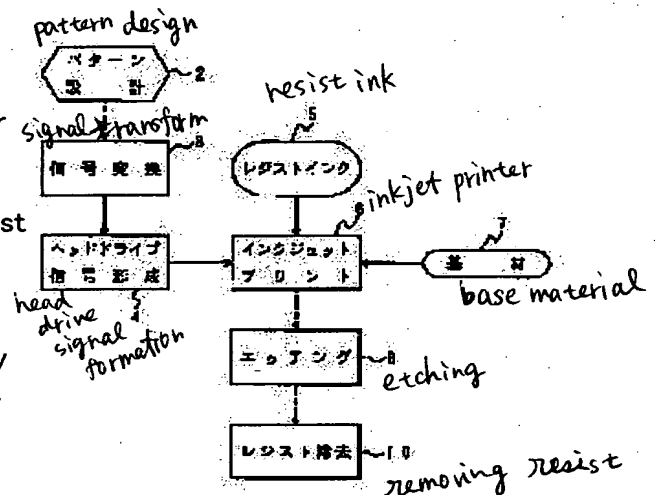 pattern design
パターン
設 計
2
signal transform
信 号 変 換
3
st
ヘッドドライブ
信 号 形 成
head
drive
signal
formation
resist ink
5
レジストインク
inkjet printer
インクジェット
プ リ ン ト
7
基 材
base material
エッチング
etching
レジスト除去
10
removing resist